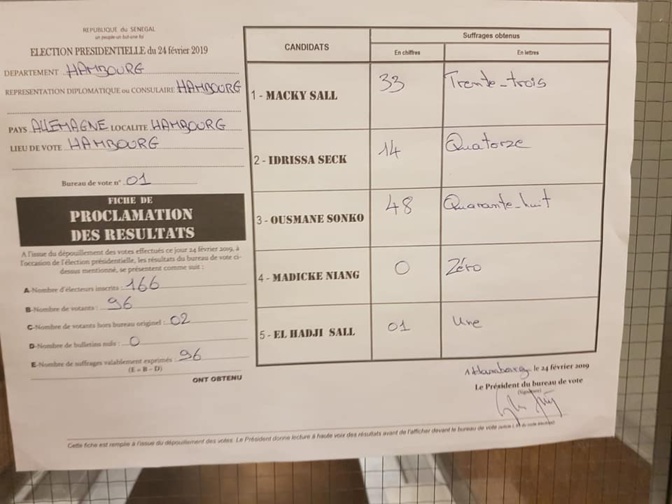 REPUBLIQUE du SENEGAL
un peuple-un but-une foi
ELECTION PRESIDENTIELLE du 24 février 2019
DEPARTEMENT HAMBOURG
REPRESENTATION DIPLOMATIQUE ou CONSULAIRE HAMBOURG
PAYS ALLEMAGNE LOCALITE HAMBOURG
LIEU DE VOTE HAMBOURG
Bureau de vote n° 01
FICHE DE
PROCLAMATION
DES RESULTATS
A l'issue du dépouillement des votes effectués ce jour 24 février 2019, à
l'occasion de l'élection présidentielle, les résultats du bureau de vote ci-
dessus mentionné, se présentent comme suit :
A-Nombre d'électeurs inscrits : 166
B-Nombre de votants : 96
C-Nombre de votants hors bureau originel : 02
D-Nombre de bulletins nuls : 0
E-Nombre de suffrages valablement exprimés 96
(E = B - D)
ONT OBTENU
CANDIDATS
Suffrages obtenus
En chiffres
En lettres
1 - MACKY SALL 33 Trente-trois
2 - IDRISSA SECK 14 Quatorze
3 - OUSMANE SONKO 48 Quarante-huit
4 - MADICKE NIANG 0 Zéro
5 - EL HADJI SALL 01 Une
A Hambourg, le 24 février 2019
Le Président du bureau de vote
(Signature)
Cette fiche est remplie à l'issue du dépouillement des votes. Le Président donne lecture à haute voix des résultats avant de l'afficher devant le bureau de vote